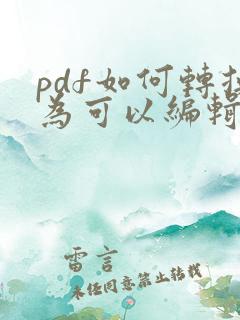 pdf如何轉換
為可以編輯
雷言
未经同意禁止转载